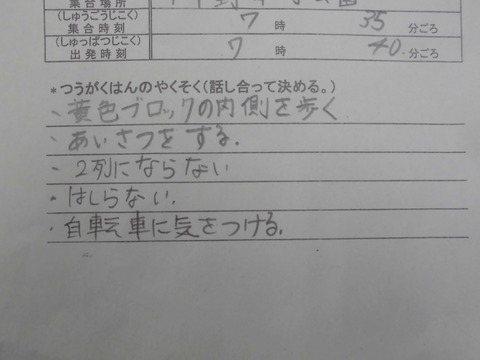 集合場所
(しゅうごうじこく)
集合時刻 7 時 35 分ごろ
(しゅっぱつじこく)
出発時刻 7 時 40 分ごろ
*つうがくはんのやくそく(話し合って決める。)
・黄色ブロックの内側を歩く
・あいさつをする.
・2列にならない
・はしらない.
・自転車に気をつける.